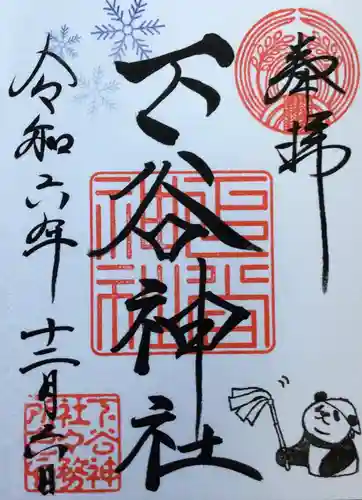 奉拝
下谷神社
令和六年
十二月六日
下谷神
社社務
所之印